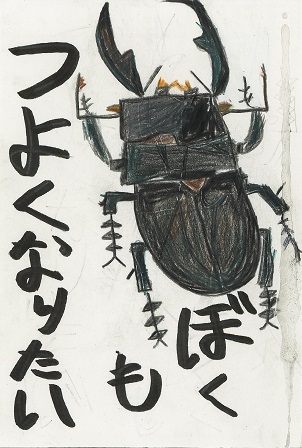 ぼく
も
つよくなりたい